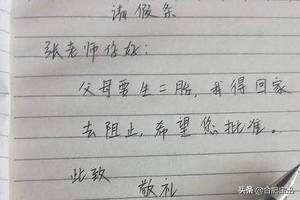 请假条
张老师您好：
父母要生二胎，我得回家
去阻止，希望您批准。
此致
敬礼